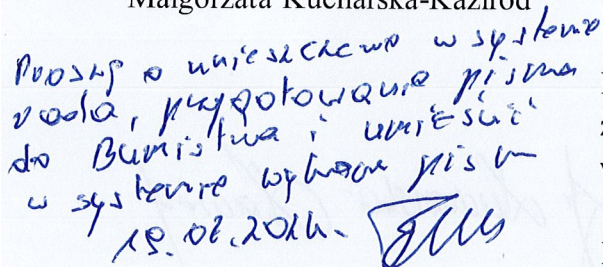 Małgorzata Kucharska-Kaziród
Proszę o umieszczenie w systemie
rada, przygotowanie pisma
do Burmistrza i umieścić
w systemie wykazu pism
19.02.2024.